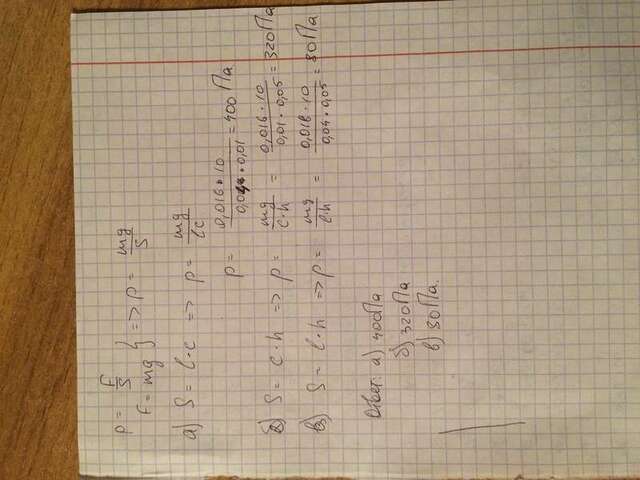 p = F/S
F = mg } => p = mg/S
а) S = l·c => p = mg/lc
p = 0,016·10/0,04·0,01 = 400 Па
б) S = c·h => p = mg/c·h = 0,016·10/0,01·0,05 = 320 Па
в) S = l·h => p = mg/l·h = 0,016·10/0,04·0,05 = 80 Па
Ответ: а) 400 Па
б) 320 Па
в) 80 Па.